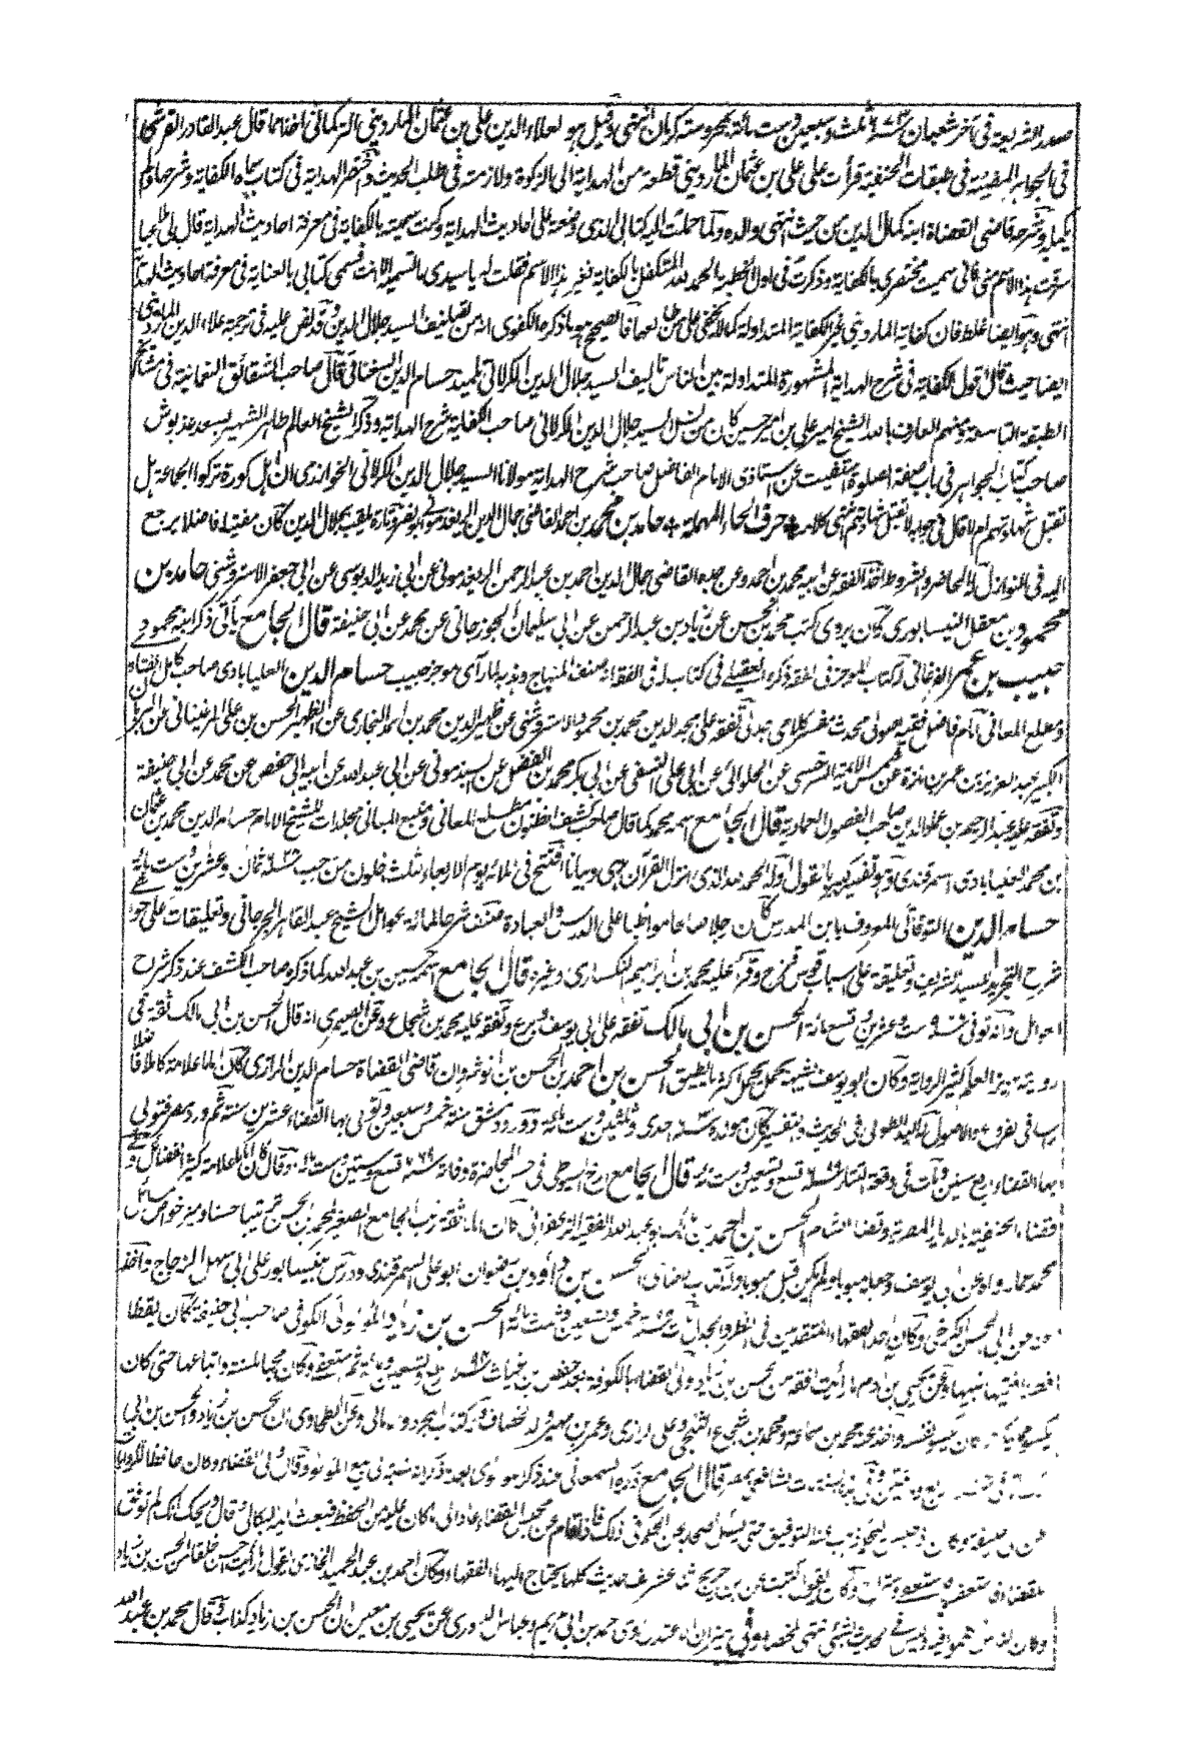 صدر الشريعة فى آخر شعبان سنة ثلث وسبعين وست مائة بمحروسة كرمان انتهى وقيل هو لعلاء الدين على بن عثمان الماردينى التركمانى اخذا مما قال عبد القادر القرشى
فى الجواهر المضيئة فى طبقات الحنفية قرأت على على بن عثمان الماردينى قطعة من الهداية الى الزكوة ولازمته فى طلب الحديث واختصر الهداية فى كتاب سماه الكفاية وشرحها ولم
يكمله وشرحه قاضى القضاة ابنه كمال الدين من حيث انتهى والده ولما حملت اليه كتابى الذى وضعته على احاديث الهداية وكنت سميته بالكفاية فى معرفة احاديث الهداية قال لى
سرقت هذا الاسم منى فانى سميت مختصرى بالكفاية وذكرت فى اول الخطبة الحمد لله المتكفل بالكفاية فغير هذا الاسم فقلت له يا سيدى ما تسميه الا انت فسمى كتابى بالعناية فى معرفة احاديث الهداية
انتهى وهو ايضا غلط فان كفاية الماردينى غير الكفاية المتداولة كما لا يخفى على من طالعهما فالصحيح هو ما ذكره الكفوى انه من تصانيف السيد جلال الدين وقد نص عليه فى ترجمة علاء الدين الماردينى
ايضا حيث قال اقول الكفاية فى شرح الهداية المشهورة المتداولة بين الناس تاليف السيد جلال الدين الكرلانى تلميذ حسام الدين السغناقى قال صاحب الشقائق النعمانية فى مشائخ
الطبقة التاسعة ومنهم العارف بالله الشيخ امير على بن امير حسين كان من نسل السيد جلال الدين الكرلانى صاحب الكفاية شرح الهداية وذكر الشيخ العالم طاهر الشهير بسعد غديوش
صاحب كتاب الجواهر فى باب صفة الصلوة استفتيت عن استاذى الامام الفاضل صاحب شرح الهداية مولانا السيد جلال الدين الكرلانى الخوارزمى ان اهل كورة تركوا الجماعة هل
تقبل شهادتهم ام لا قال فى جوابه لا تقبل شهادتهم انتهى كلامه حرف الحاء المهملة حامد بن محمد بن احمد القاضى جمال الدين الريغدمونى ابو نصر وتارة يلقب بجلال الدين كان مفتيا فاضلا يرجع
اليه فى النوازل والمحاضر والشروط اخذ الفقه عن ابيه محمد بن احمد وعن جده القاضى جمال الدين احمد بن عبد الرحمن الريغدمونى عن ابى زيد الدبوسى عن ابى جعفر الاستروشنى حامد بن
محمود بن معقل النيسابورى كان يروى كتب محمد بن الحسن عن زياد بن عبد الرحمن عن ابى سليمان الجوزجانى عن محمد عن ابى حنيفة قال الجامع يأتى ذكر ابيه محمود
حبيب بن عمر الفرغانى له كتاب الموجز فى الفقه ذكره العقيلى فى كتاب له فى الفقه صنف المنهاج وهذبه لما رأى موجز حبيب حسام الدين العليابادى صاحب كامل الفتاوى
ومطلع المعانى امام فاضل فقيه اصولى محدث مفسر كلامى جدلى تفقه على مجد الدين محمد بن محمود الاستروشنى عن ظهير الدين محمد بن احمد البخارى عن الظهير الحسن بن على المرغينانى عن البرهان
الكبير عبد العزيز بن عمر بن مازة عن شمس الائمة السرخسى عن الحلوانى عن ابى على النسفى عن ابى بكر محمد بن الفضل عن السبذمونى عن ابى عبد الله عن ابيه ابى حفص عن محمد عن ابى حنيفة
وتفقه عليه عبد الرحيم بن عماد الدين صاحب الفصول العمادية قال الجامع اسمه محمد كما قال صاحب كشف الظنون مطلع المعانى ومنبع المبانى مجلدات للشيخ الامام حسام الدين محمد بن عثمان
بن محمد العليابادى السمرقندى وهو تفسير كبير بالقول اوله الحمد لله الذى انزل القرآن هدى وبيانا افتتح فى املائه يوم الاربعاء لثلث خلون من رجب سنة ثمان وعشرين وست مائة
حسام الدين التوقاتى المعروف بابن المدرس كان رجلا صالحا مواظبا على الدرس والعبادة صنف شرحا لمائة عوامل للشيخ عبد القاهر الجرجانى وتعليقات على حواشى
شرح التجريد للسيد الشريف وتعليقة على اسباب قوس قزح وقرأ عليه محمد بن ابراهيم النكسارى وغيره قال الجامع اسمه حسين بن عبد الله كما ذكره صاحب الكشف عند ذكر شرح
العوامل وانه توفى سنة ست وعشرين وتسع مائة الحسن بن ابى مالك تفقه على ابى يوسف وبرع وتفقه عليه محمد بن شجاع وعن الصيمرى انه قال الحسن بن ابى مالك ثقة فى
روايته غزير العلم كثير الرواية وكان ابو يوسف يشبهه بجمل يحمل اكثر ما يطيق الحسن بن احمد بن الحسن بن انوشروان قاضى القضاة حسام الدين الرازى كان اماما علامة كاملا فاضلا
راسا فى الفروع والاصول له اليد الطولى فى الحديث والتفسير كان مولده سنة احدى وثلثين وست مائة وورد دمشق سنة خمس وسبعين وتولى بها القضاء عشرين سنة ثم ورد مصر فتولى
بها القضاء اربع سنين ومات فى وقعة التتار سنة تسع وتسعين وست مائة قال الجامع ارخ السيوطى فى حسن المحاضرة وفاته سنة تسع وستين وست مائة وقال كان اماما علامة كثير الفضائل ولى
قضاء الحنفية بالديار المصرية وقضاء الشام الحسن بن احمد بن مالك ابو عبد الله الفقيه الزعفرانى كان اماما ثقة رتب الجامع الصغير لمحمد بن الحسن ترتيبا حسنا وميز خواص مسائل
محمد عما رواه عن ابى يوسف وجعله مبوبا ولم يكن قبل مبوبا وله كتاب الاضاحى الحسن بن داود بن رضوان ابو على السمرقندى ودرس بنيسابور على ابى سهل الزجاج واخذ
عن ابى الحسن الكرخى وكان احد الفقهاء المتقدمين فى النظر والجدل مات سنة خمس وتسعين وثلث مائة الحسن بن زياد اللؤلؤى الكوفى صاحب ابى حنيفة كان يقظا
فطنا فقيها نبيها وعن يحيى بن آدم ما رأيت افقه من الحسن بن زياد ولى القضاء بالكوفة بعد حفص بن غياث سنة اربع وتسعين ومائة ثم استعفى وكان محبا للسنة واتباعها حتى كان
يكسو مماليكه كما كان يكسو نفسه واخذ عنه محمد بن سماعة ومحمد بن شجاع الثلجى وعلى الرازى وعمر بن مهير والد الخصاف وله كتاب المجرد والامالى وعن الطحاوى ان الحسن بن زياد والحسن بن ابى
مالك توفيا سنة اربع ومائتين وفى هذه السنة مات الشافعى بمصر قال الجامع ذكره السمعانى عند ذكر اللؤلؤى بعد ذكر انه نسبة الى بيع اللؤلؤ وقال ولى القضاء وكان حافظا للروايات
عن ابى حنيفة وكان اذا جلس ليحكم ذهب عنه التوفيق حتى يسأل اصحابه عن الحكم فى ذلك فاذا قام عن مجلس القضاء عاد الى ما كان عليه من الحفظ فبعث اليه البكائى وقال ويحك انك لم توفق
للقضاء فاستعف فاستعفى واستراح وكان يقول كتبت عن ابن جريج اثنى عشر الف حديث كلها يحتاج اليها الفقهاء وكان احمد بن عبد الحميد الحازمى يقول ما رأيت احسن خلقا من الحسن بن زياد
وكان الناس تكلموا فيه وليس فى الحديث بشئ انتهى ملخصا وفى ميزان الاعتدال روى احمد بن ابى مريم وعباس الدورى عن يحيى بن معين ان الحسن بن زياد كذاب وقال محمد بن عبد الله